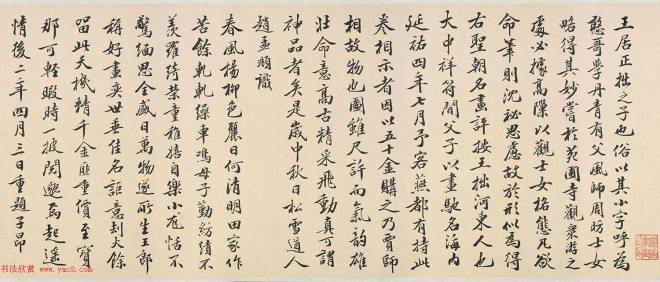 王居正拙之子也俗以其小字呼為
憨哥學丹青有父風師周昉士女
略得其妙嘗於苑囿寺觀眾游之
處必據高隙以觀士女格態凡欲
命筆則沈祕思慮故於形似為得
右聖朝名畫評按王拙河東人也
大中祥符間父子以畫馳名海內
延祐四年七月予客燕都有持此
卷相示者因以五十金購之乃賈師
相故物也圖雖尺許而氣韵雄
壯命意高古精采飛動真可謂
神品者矣是歲中秋日松雪道人
趙孟頫識
春風楊柳色麗日何清明田家作
苦餘軋軋繰車鳴母子勤紡績不
羨羅綺榮童稚嬉自樂小尨恬不
驚緬思全盛日萬物遂所生王郎
稱好畫奕世垂佳名詎意劫火餘
留此天機精千金匪重價至寶
那可輕暇時一披閱邈焉起遥
情後二年四月三日重題子昂
书法欣赏
www.yac8.com